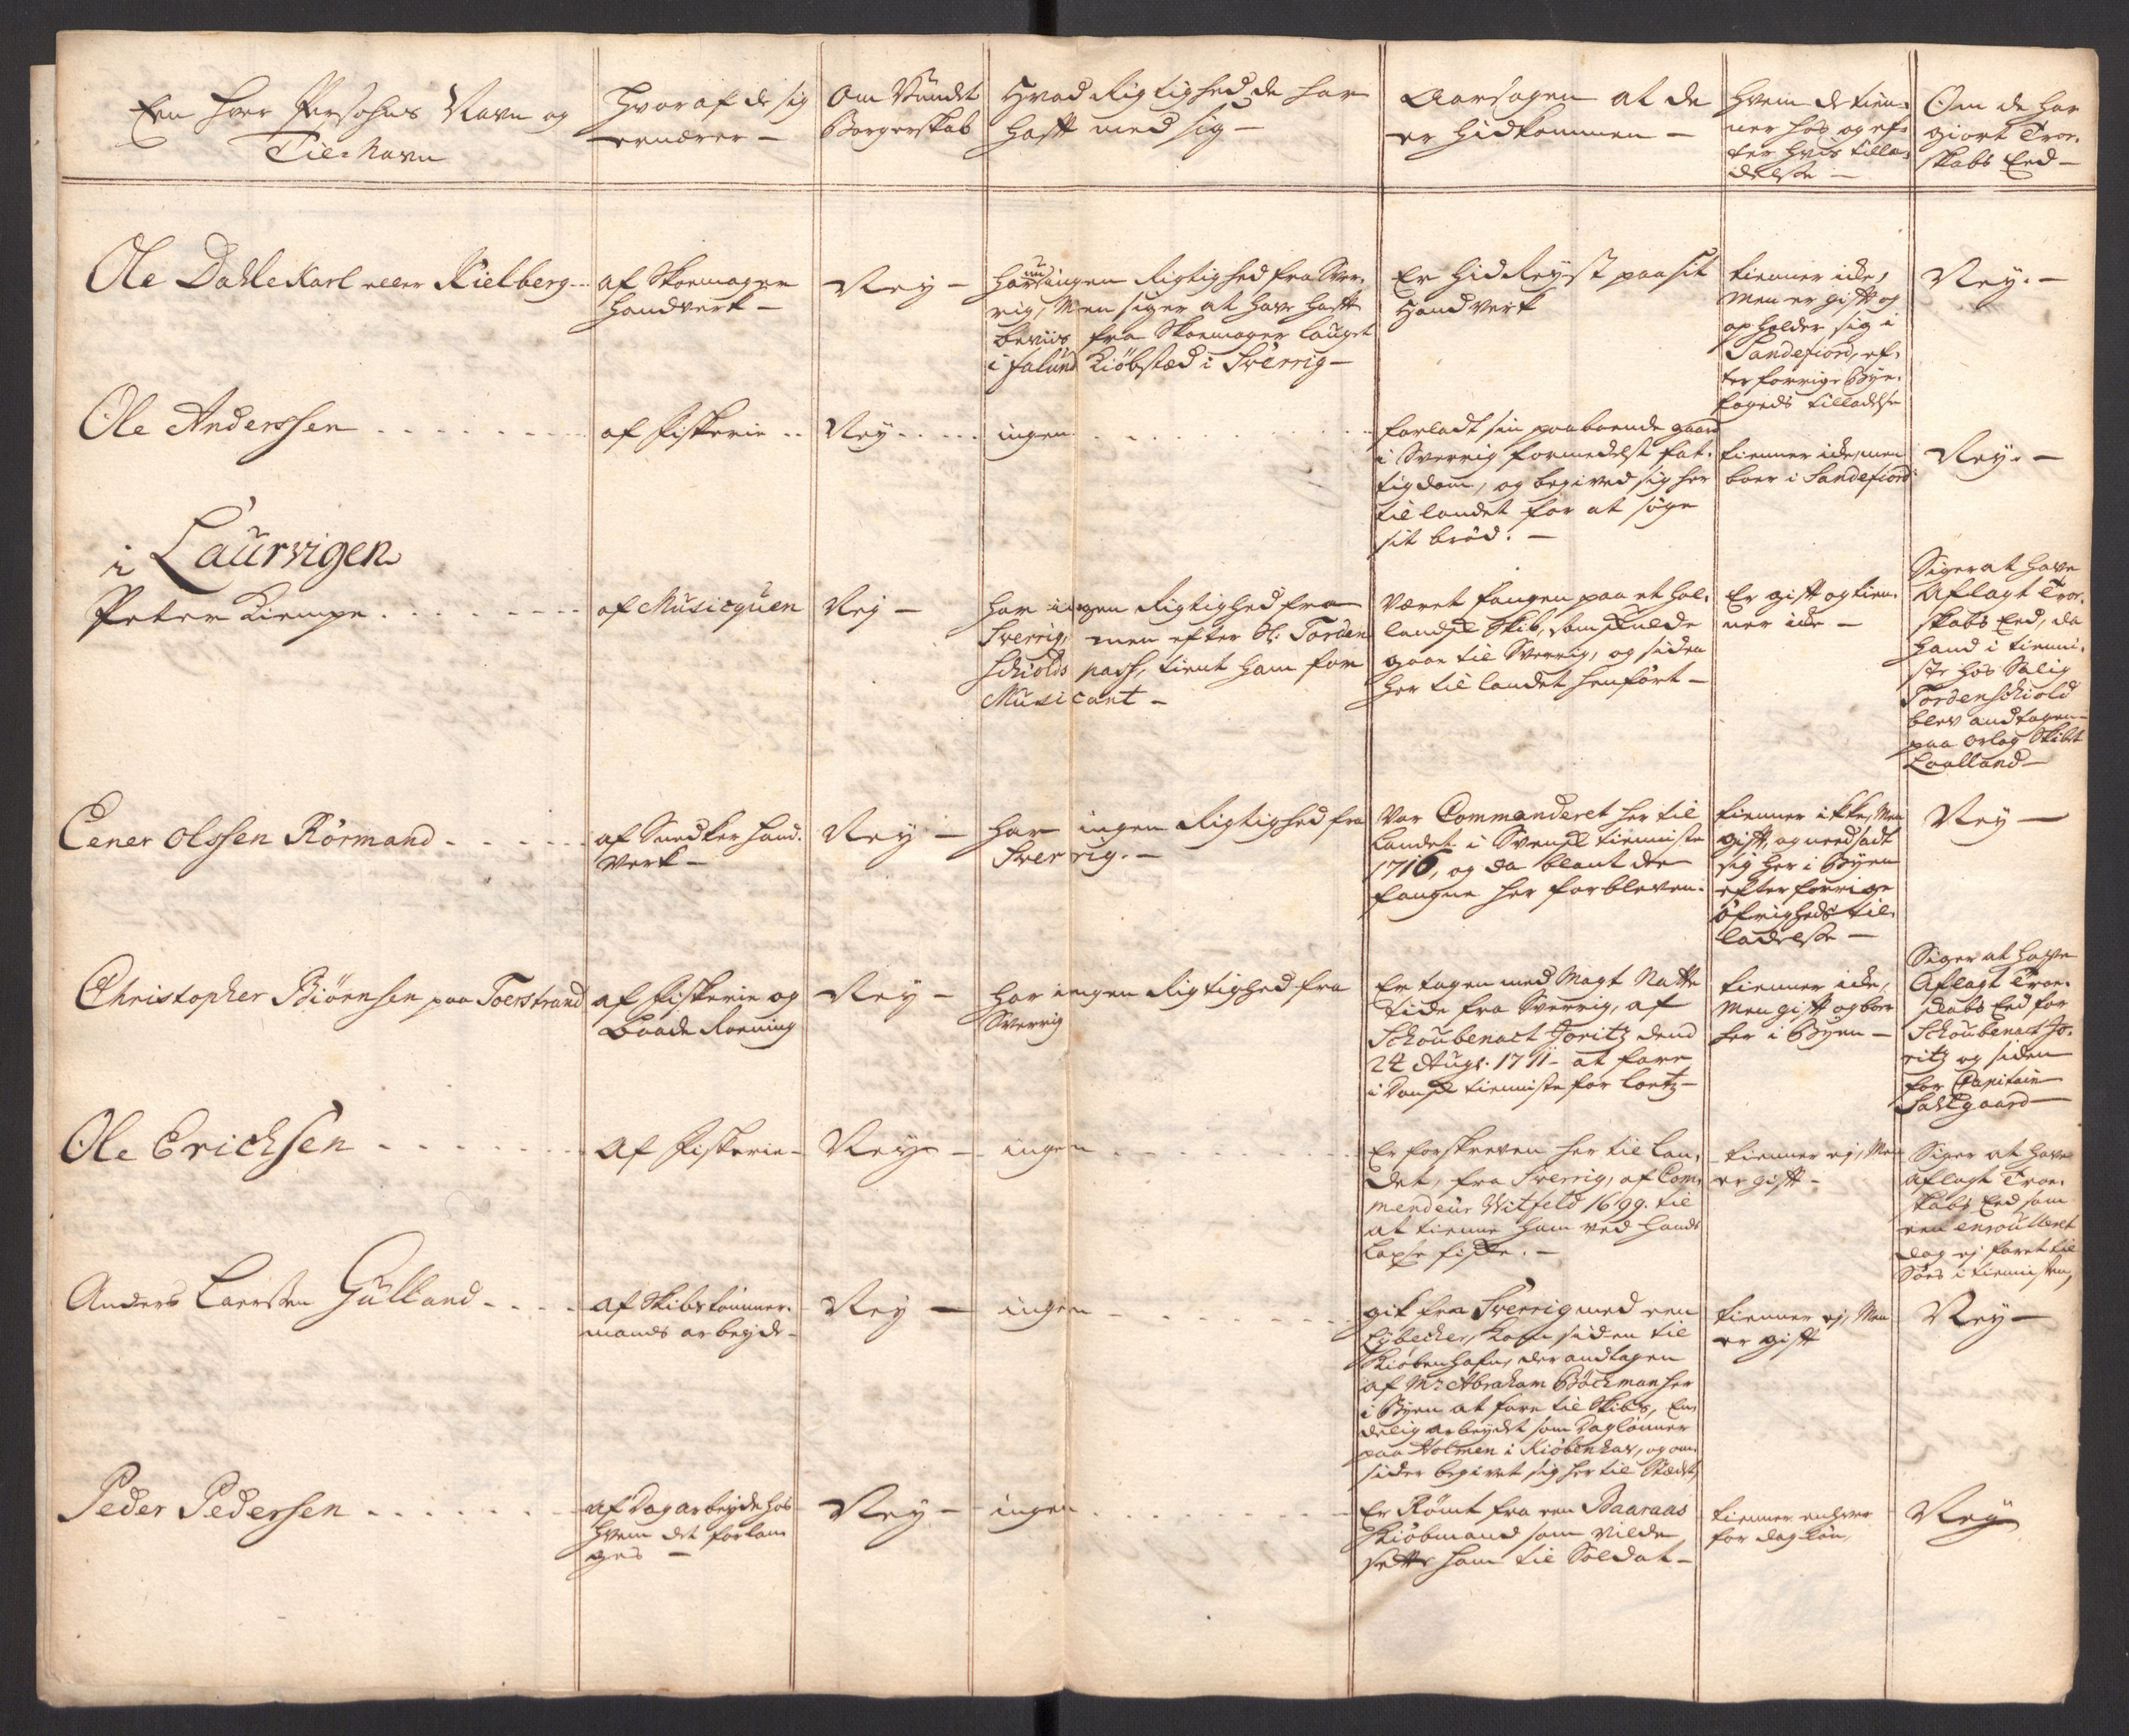 Een hver Persohns Navn og
Til-Navn
Hvoraf de sig
ernærer -
Om Vundet
Borgerskab
Hvad Rigtighed de har
hafft med sig -
Aarsagen at de
er Hidkommen -
Hvem de tien-
ner hos og ef-
ter hvis tilla-
delsse -
Om de har
giort Troe-
skabs Eed -
Ole Dahlekarl eller Kielberg
af Skoemager
Handverk -
Ney -
Har nu ingen Rigtighed fra Sver-
rig, Men siger at have hafft
beviis fra Skoemager lauget
i Falund Kiöbstæd i Sverrig -
Er Hid Reyst paa sit
Handverk
tienner icke,
Men er gifft og
opholder sig i
Sandefiord, ef-
ter forrige Bye-
fogeds tilladelse
Ney. -
Ole Anderssen
af Fiskerie
Ney
ingen
forladt sin paaboende gaard
i Sverrig formedelst fat-
tigdom, og begived sig her
til landet for at søge
sit brød. -
tienner icke, men
boer i Sandefiord
Ney. -
i Laurvigen
Peter Kiempe
af Musicquen
Ney -
har ingen Rigtighed fra
Sverrig, men efter Sl. Torden
schiolds pass, tient ham for
Musicant -
Været fangen paa et hol-
landsk Skib, som skulde
gaae til Sverrig, og siden
her til landet henført -
Er gifft og tien-
ner icke -
Siger at have
Aflagt Troe-
skabs Eed, da
hand i tienni-
ste hos Salig
Tordenschiold
blev andtagen
paa Orlog Skibet
Laalland -
Eener Olssen Rörmand
af Snedker Hand-
verk -
Ney -
har ingen Rigtighed fra
Sverrig. -
Var Commanderet her til
Landet i Svensk tienniste
1716, og da blant de
fangne her forbleven.
tienner ikke, Men
gifft, og needsadt
sig her i Byen
efter forrige
Öfrigheds til-
ladelsse -
Ney -
Christopher Biörnsen paa Toerstrand
af Fiskerie og
Baade Roening
Ney -
har ingen Rigtighed fra
Sverrig
Er tagen med Magt Natte
tide fra Sverrig, af
Schoubenact Joritz dend
24 Augs. 1711 at fare
i Dansk tienniste for Loetz -
tienner icke,
Men gifft og boer
her i Byen -
Siger at have
Aflagt Troe-
skabs Eed for
Schoubenact Jo-
ritz og siden
for Capitain
Saltzgaard -
Ole Erichsen
Af Fiskerie -
Ney -
ingen
Er forskreven her til Lan-
det, fra Sverrig, af Com-
mendeur Witfeld 1699. til
at tienne ham ved hands
laxe fiske. -
tienner ej, Men
er gifft -
Siger at have
aflagt Troe-
skabs Eed som
een enroulleret
dog ej faret til
Söes i tiennisten,
Anders Laersen Gulland
af Skibstømmer-
mands arbeyde -
Ney -
ingen
gik fra Sverrig med een
Lybecker, kom siden til
Kiöbenhafn, der andtagen
af Mr Abraham Böckman her
i Byen at fare til Skibs, En-
delig arbeydet som Daglönner
paa Holmen i Kiöbenhav, og om-
sider begivet sig her til Stædet,
tienner ej, Men
er gifft
Ney -
Peder Pedersen
af Dag arbeyde hos
hvem det forlan-
ges -
Ney -
ingen
Er Römt fra een Baaraas
Kiöbmand som vilde
sette ham til Soldat -
tienner enhver
for dag lön,
Ney